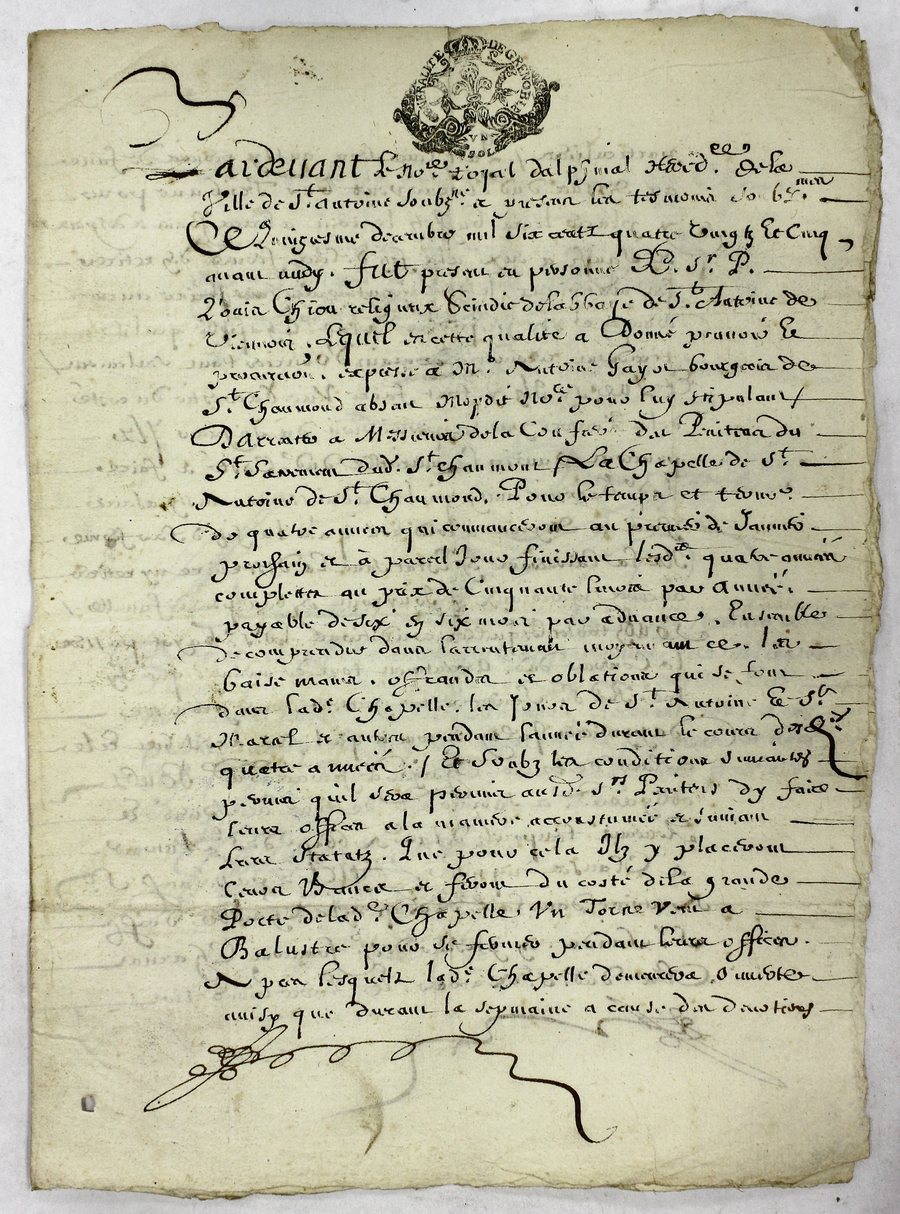 GENERALITE DE GRENOBLE
VN SOL
Pardevant le no.re Royal dalphinal de la
Ville de S.t Antoine soubz.né et presens les tesmoins soubz.
Ce Quinziesme decembre mil six centz quatre vingtz Et Cinq
avant midy. Fut present en personne R. S.r P.
Chion religieux Scindic de labbaje de S.t Antoine de
Viennois, Lequel en cette qualite a Donné pouvoir Et
procura.on expresse a M.r Antoine Gayot bourgeois de
S.t Chaumond absent Moydit no.re pour luy stipulant
Darranter a Messieurs de la Confrer. des Penitens du
S.t Sacrement dud. S.t chaumont La Chapelle de S.t
Antoine de S.t Chaumond. Pour le temps et terme
de quatre annees qui commanceront au premier de Janvier
prochain et à pareil Jour finissant lesd. quatre années
complettes au prix de Cinquante livres par Année.
payable de six en six mois par advance. Ensemble
de comprendre dans larrentement moyennant ce. les
baise mains, offrandes et oblations qui se font
dans lad. Chapelle. les Jours de S.t Antoine Et S.t
Maral et autres pendant lannée durant le cours desd.
quatre années. / Et Soubz les conditions suivantes
premier quil sera permis ausd. S.rs Penitens dy faire
leurs offices a la maniere accoustumée et suivant
Leurs Statutz. Que pour cela Ilz y placeront
Leurs Bancs et feront du costé de la grande
Porte de lad. Chapelle Un Torne Vent a
Balustre pour se fermer pendant leurs offices.
Apres lesquelz lad. Chapelle demeurera Ouverte
ainsy que durant la sepmaine a cause des devotions